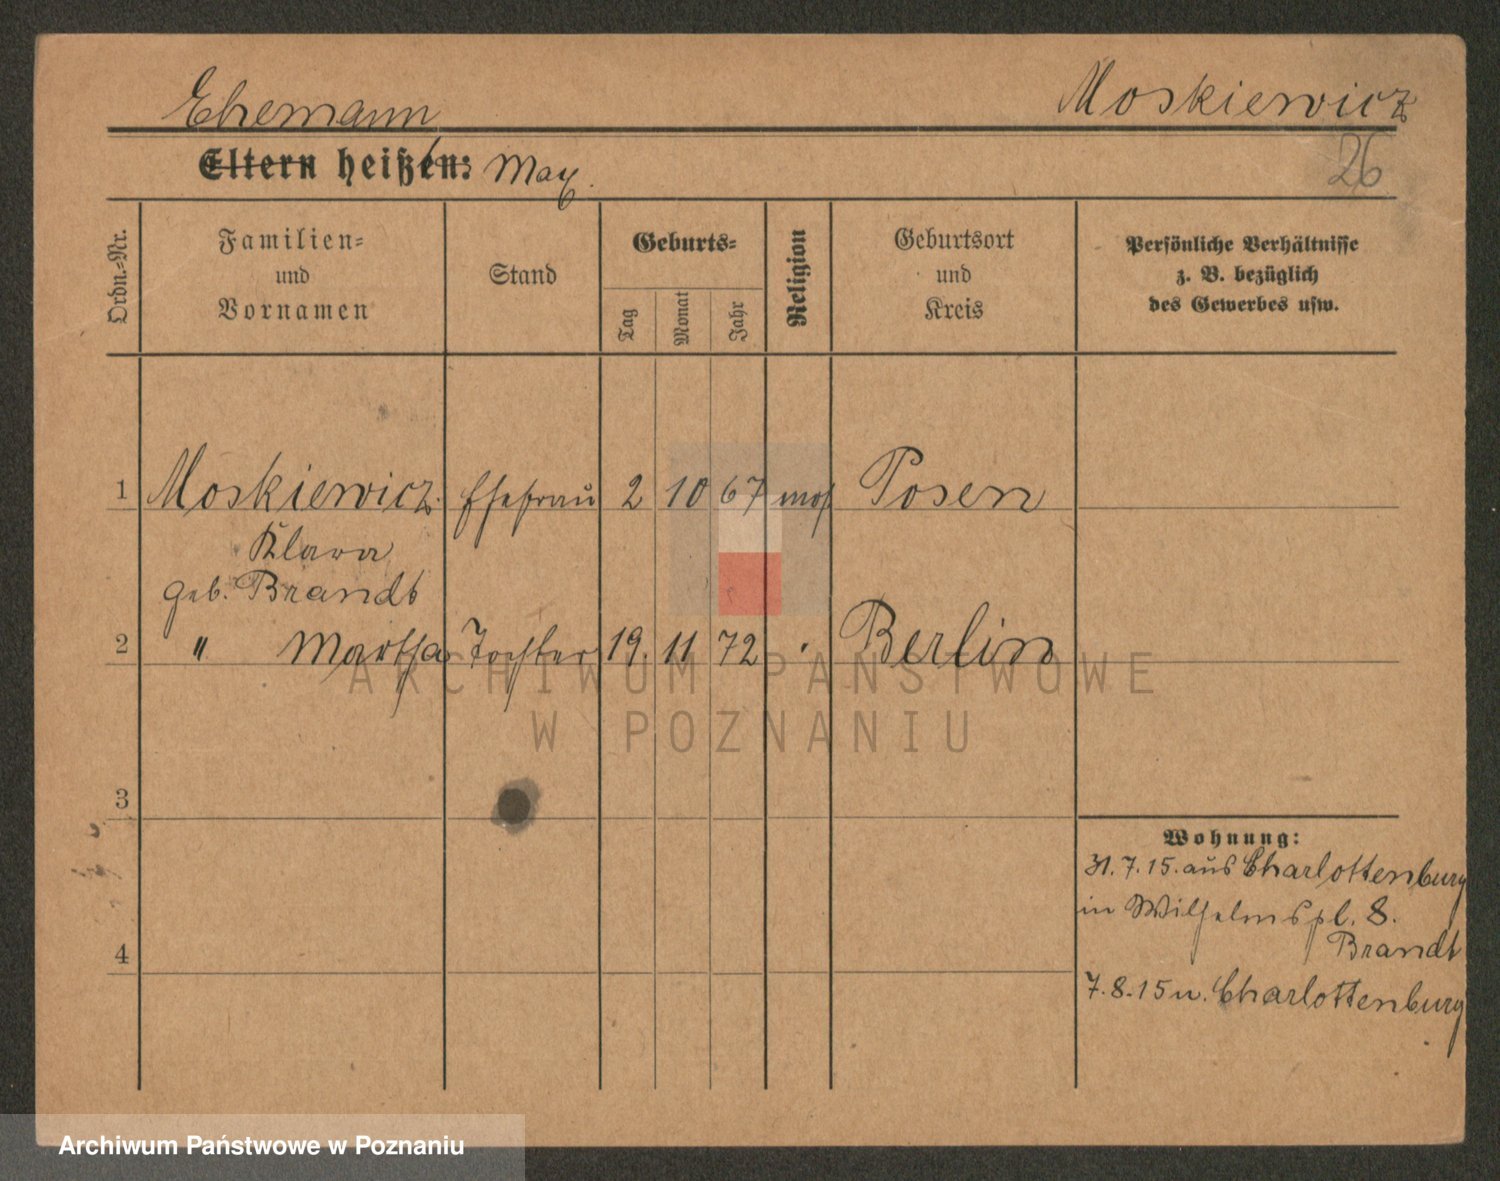 Ehemann
Moskiewicz
Eltern heißen: Max.
26
Ordn.-Nr.
Familien-
und
Vornamen
Stand
Geburts-
Tag
Monat
Jahr
Religion
Geburtsort
und
Kreis
Persönliche Verhältnisse
z. B. bezüglich
des Gewerbes usw.
1 Moskiewicz Ehefrau 2 10 67 mos Posen
Klara
geb. Brandt
2 " Martha Tochter 19. 11 72 Berlin
3
4
Wohnung:
31.7.15. aus Charlottenburg
in Wilhelmspl. 8.
Brandt
7.8.15 n. Charlottenburg
ARCHIWUM PAŃSTWOWE
W POZNANIU
Archiwum Państwowe w Poznaniu